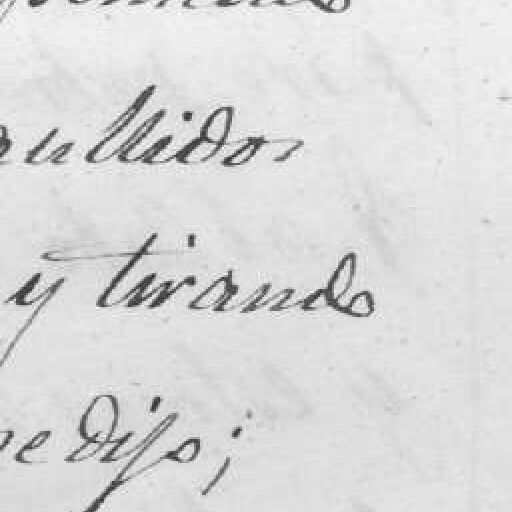 aullidos
y tirando
dijo;